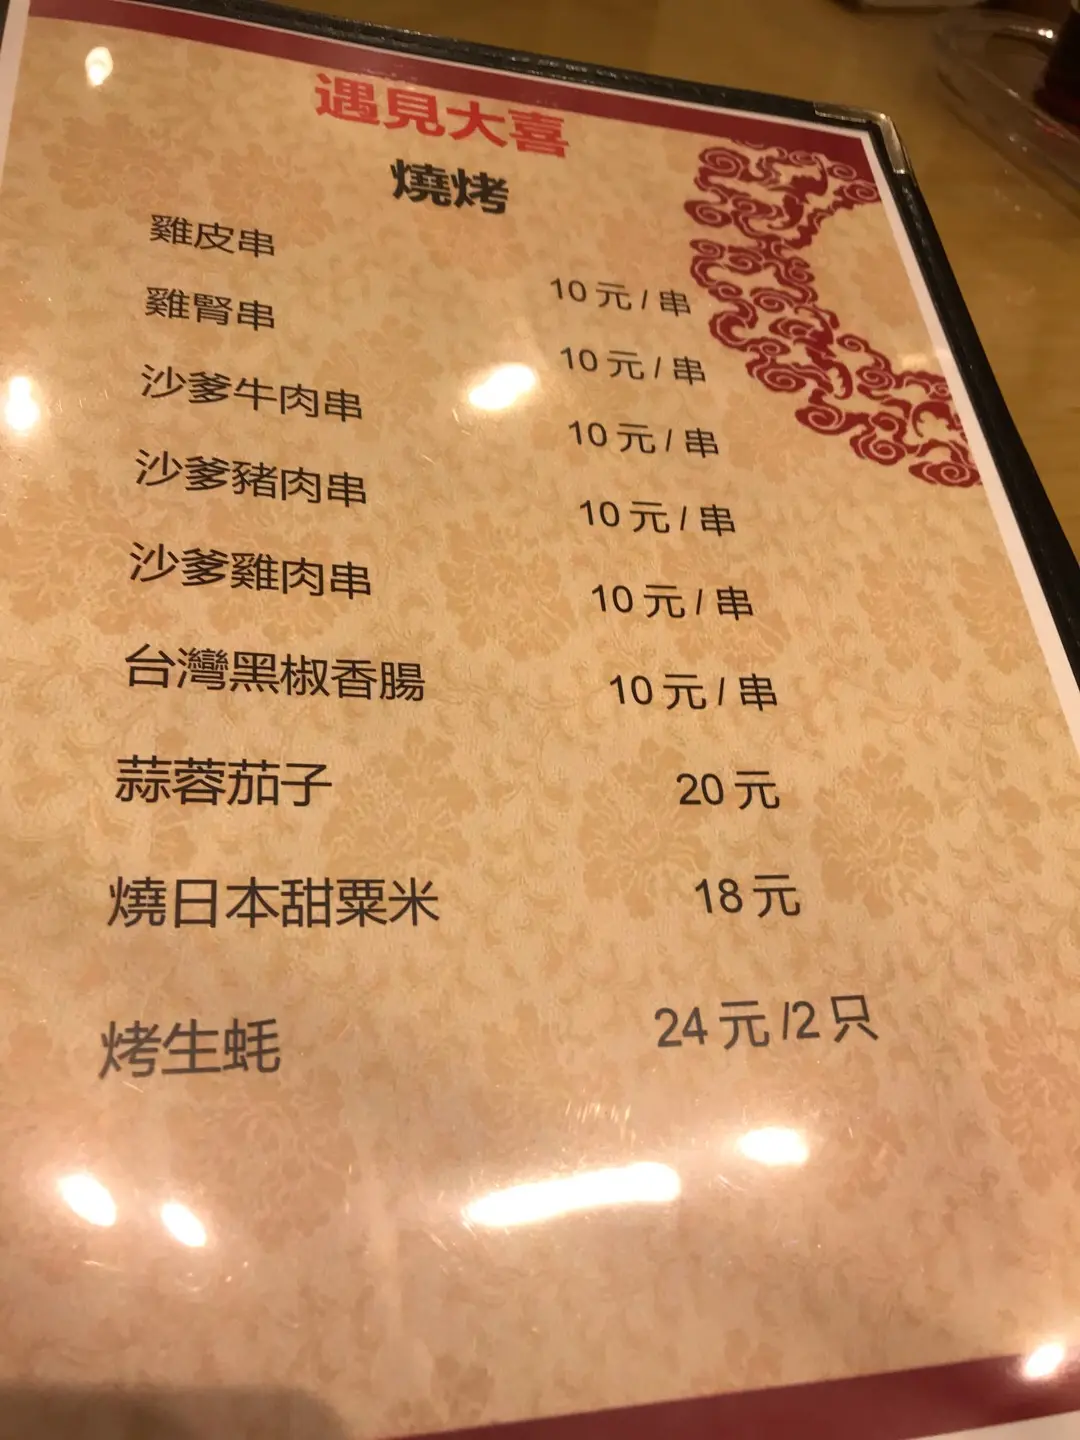 遇見大喜
燒烤
雞皮串 10 元 / 串
雞腎串 10 元 / 串
沙爹牛肉串 10 元 / 串
沙爹豬肉串 10 元 / 串
沙爹雞肉串 10 元 / 串
台灣黑椒香腸 10 元 / 串
蒜蓉茄子 20 元
燒日本甜粟米 18 元
烤生蚝 24 元 /2 只